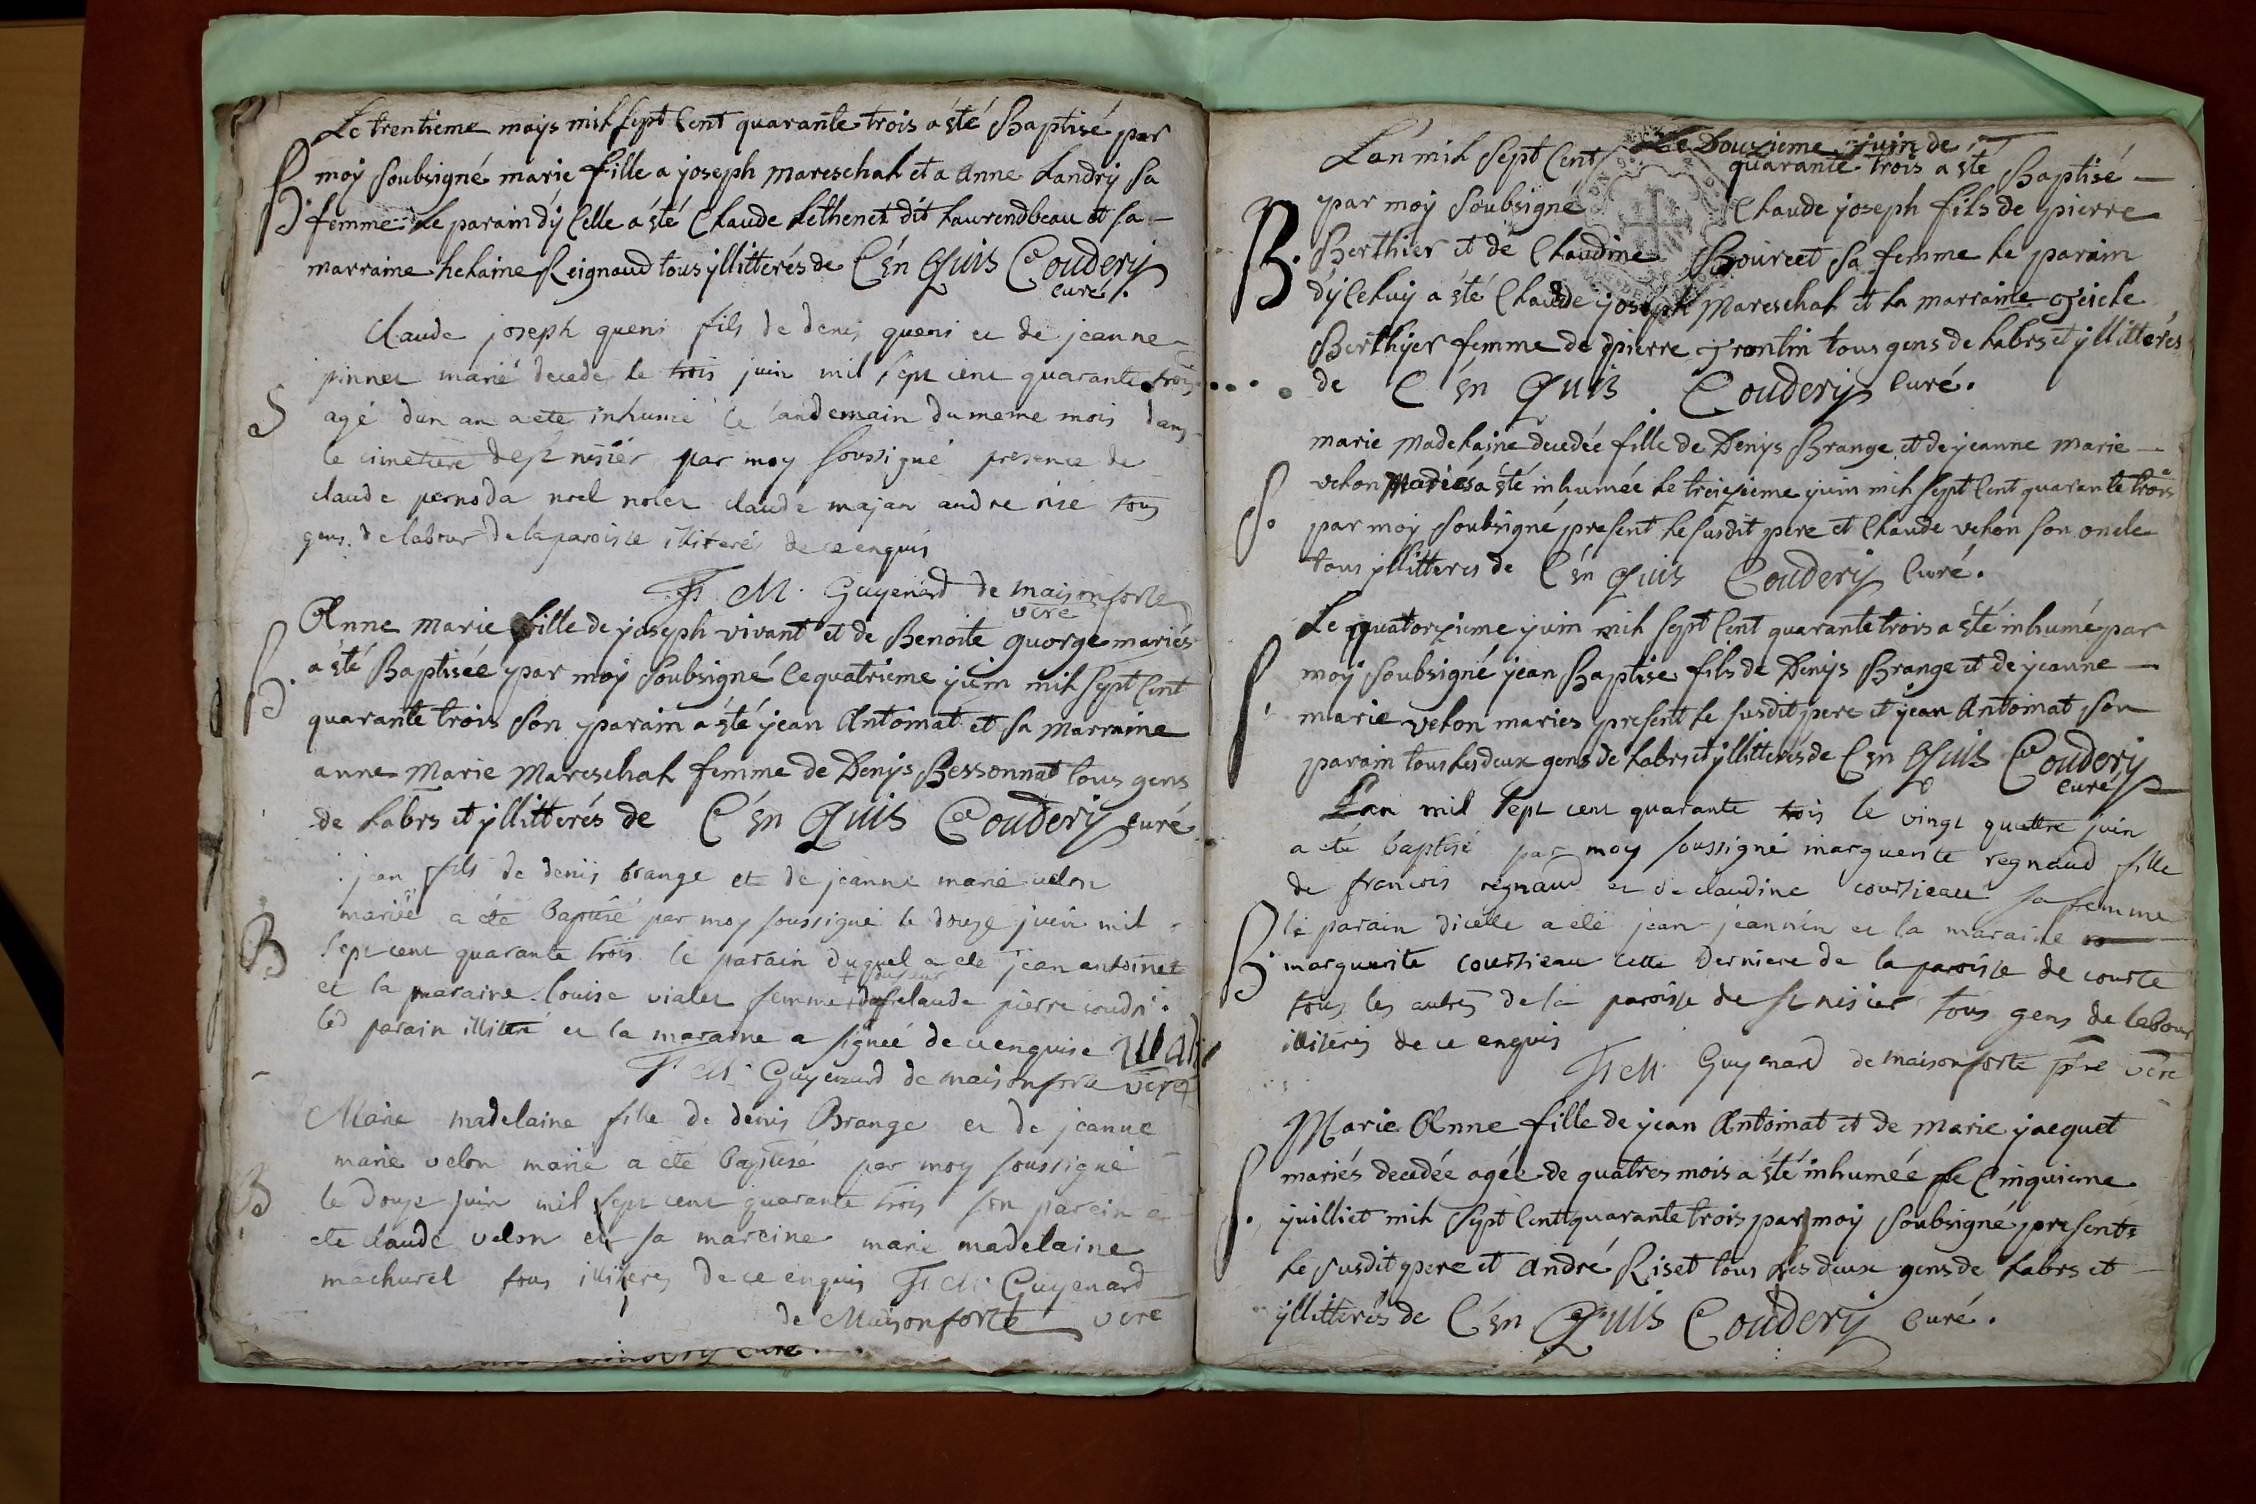 Le trentieme mays mil sept Cent quarante trois a êté Baptisé par
B. moÿ Soubsigné marie fille a joseph mareschal et a Anne Landrÿ sa
femme le parain dÿ Celle a êté Claude Lethenet dit Laurendbeau et sa
marraine helaine Reignaud tous ÿllitterés de C'én Quis Coudery
curé.
Claude joseph queni fils de denis queni et de jeanne
pinnet marié decede le trois juin mil sept cent quarante trois
S agé dun an a ete inhumé le landemain du meme mois dans
le cimetiere de st nisier par moy soussigné presence de
claude pernoda noel claude majan andre tous
gens de labour de la paroisse illiterés de ce enquis
F. M. Guyenard de maisonforte
vere
B. Anne marie fille de joseph vivant et de Benoite guorge mariés
a êté Baptisée par moÿ Soubsigné le quatrieme juin mil sept Cent
quarante trois son parain a êté jean Antoinat et sa marraine
anne marie mareschal femme de Denÿs Bessonnat tous gens
de Labrs et ÿllitterés de C'én Quis Coudery curé
jean fils de denis brange et de jeanne marie velon
mariée a été baptisé par moy soussigné le douze juin mil
B sept cent quarante trois le parain duquel a ete jean antoinet
et la maraine louise vialet femme claude pierre
led parain illiteré et la maraine a signée de ce enquise
F. M. Guyenard de maisonforte vere
Marie madelaine fille de denis Brange et de jeanne
marie velon marie a ete baptisé par moy soussigné
B le douze juin mil sept cent quarante trois son parain a
ete claude velon et sa mareine marie madelaine
machurel tous illiteres de ce enquis F. M. Guyenard
de Maisonforte vere
curé.
Le Douzieme juin de
L'an mil sept Cent quarante trois a êté Baptisé
par moÿ Soubsigné Claude joseph fils de pierre
B. Berthier et de Claudine Bourcet sa femme le parain
dÿ Celuÿ a êté Claude joseph mareschal et la marraine
Berthÿer femme de pierre tous gens de Labrs et ÿllitterés
de C'én Quis Coudery Curé.
marie madelaine decedée fille de Denÿs Brange et de jeanne marie
S. velon mariés a êté inhumée le treizieme juin mil sept Cent quarante trois
par moÿ Soubsigné present le susdit pere et Claude velon son oncle
tous ÿllitteres de C'én Quis Coudery Curé.
Le quatorzieme juin mil sept Cent quarante trois a êté inhumé par
S. moÿ Soubsigné jean Baptise fils de Denÿs Brange et de jeanne
marie velon maries present le susdit pere et jean Antoinat son
parain tous les deux gens de Labrs et ÿllitterés de C'én Quis Coudery
curé
L'an mil sept cent quarante trois le vingt quattre juin
a eté baptisé par moy soussigné marguerite regnaud fille
de francois regnaud et de claudine courtieau sa femme
le parain dicelle a eté jean jeannin et la maraine
B. marguerite courtieau cette derniere de la paroisse de
tous les autres de la paroisse de st nisier tous gens de labour
illiterés de ce enquis
F. M. Guyenard de maisonforte ptre vere
Marie Anne fille de jean Antoinat et de marie jacquet
mariés decedée agée de quatres mois a êté inhumée le Cinquieme
S. juilliet mil sept Cent quarante trois par moÿ Soubsigné presents
le susdit pere et André Riset tous les deux gens de Labrs et
ÿllitterés de C'én Quis Coudery Curé.